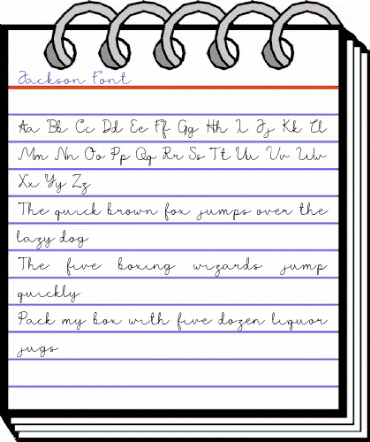 Jackson Font
Aa Bb Cc Dd Ee Ff Gg Hh Ii Jj Kk Ll
Mm Nn Oo Pp Qq Rr Ss Tt Uu Vv Ww
Xx Yy Zz
The quick brown fox jumps over the
lazy dog
The five boxing wizards jump
quickly
Pack my box with five dozen liquor
jugs